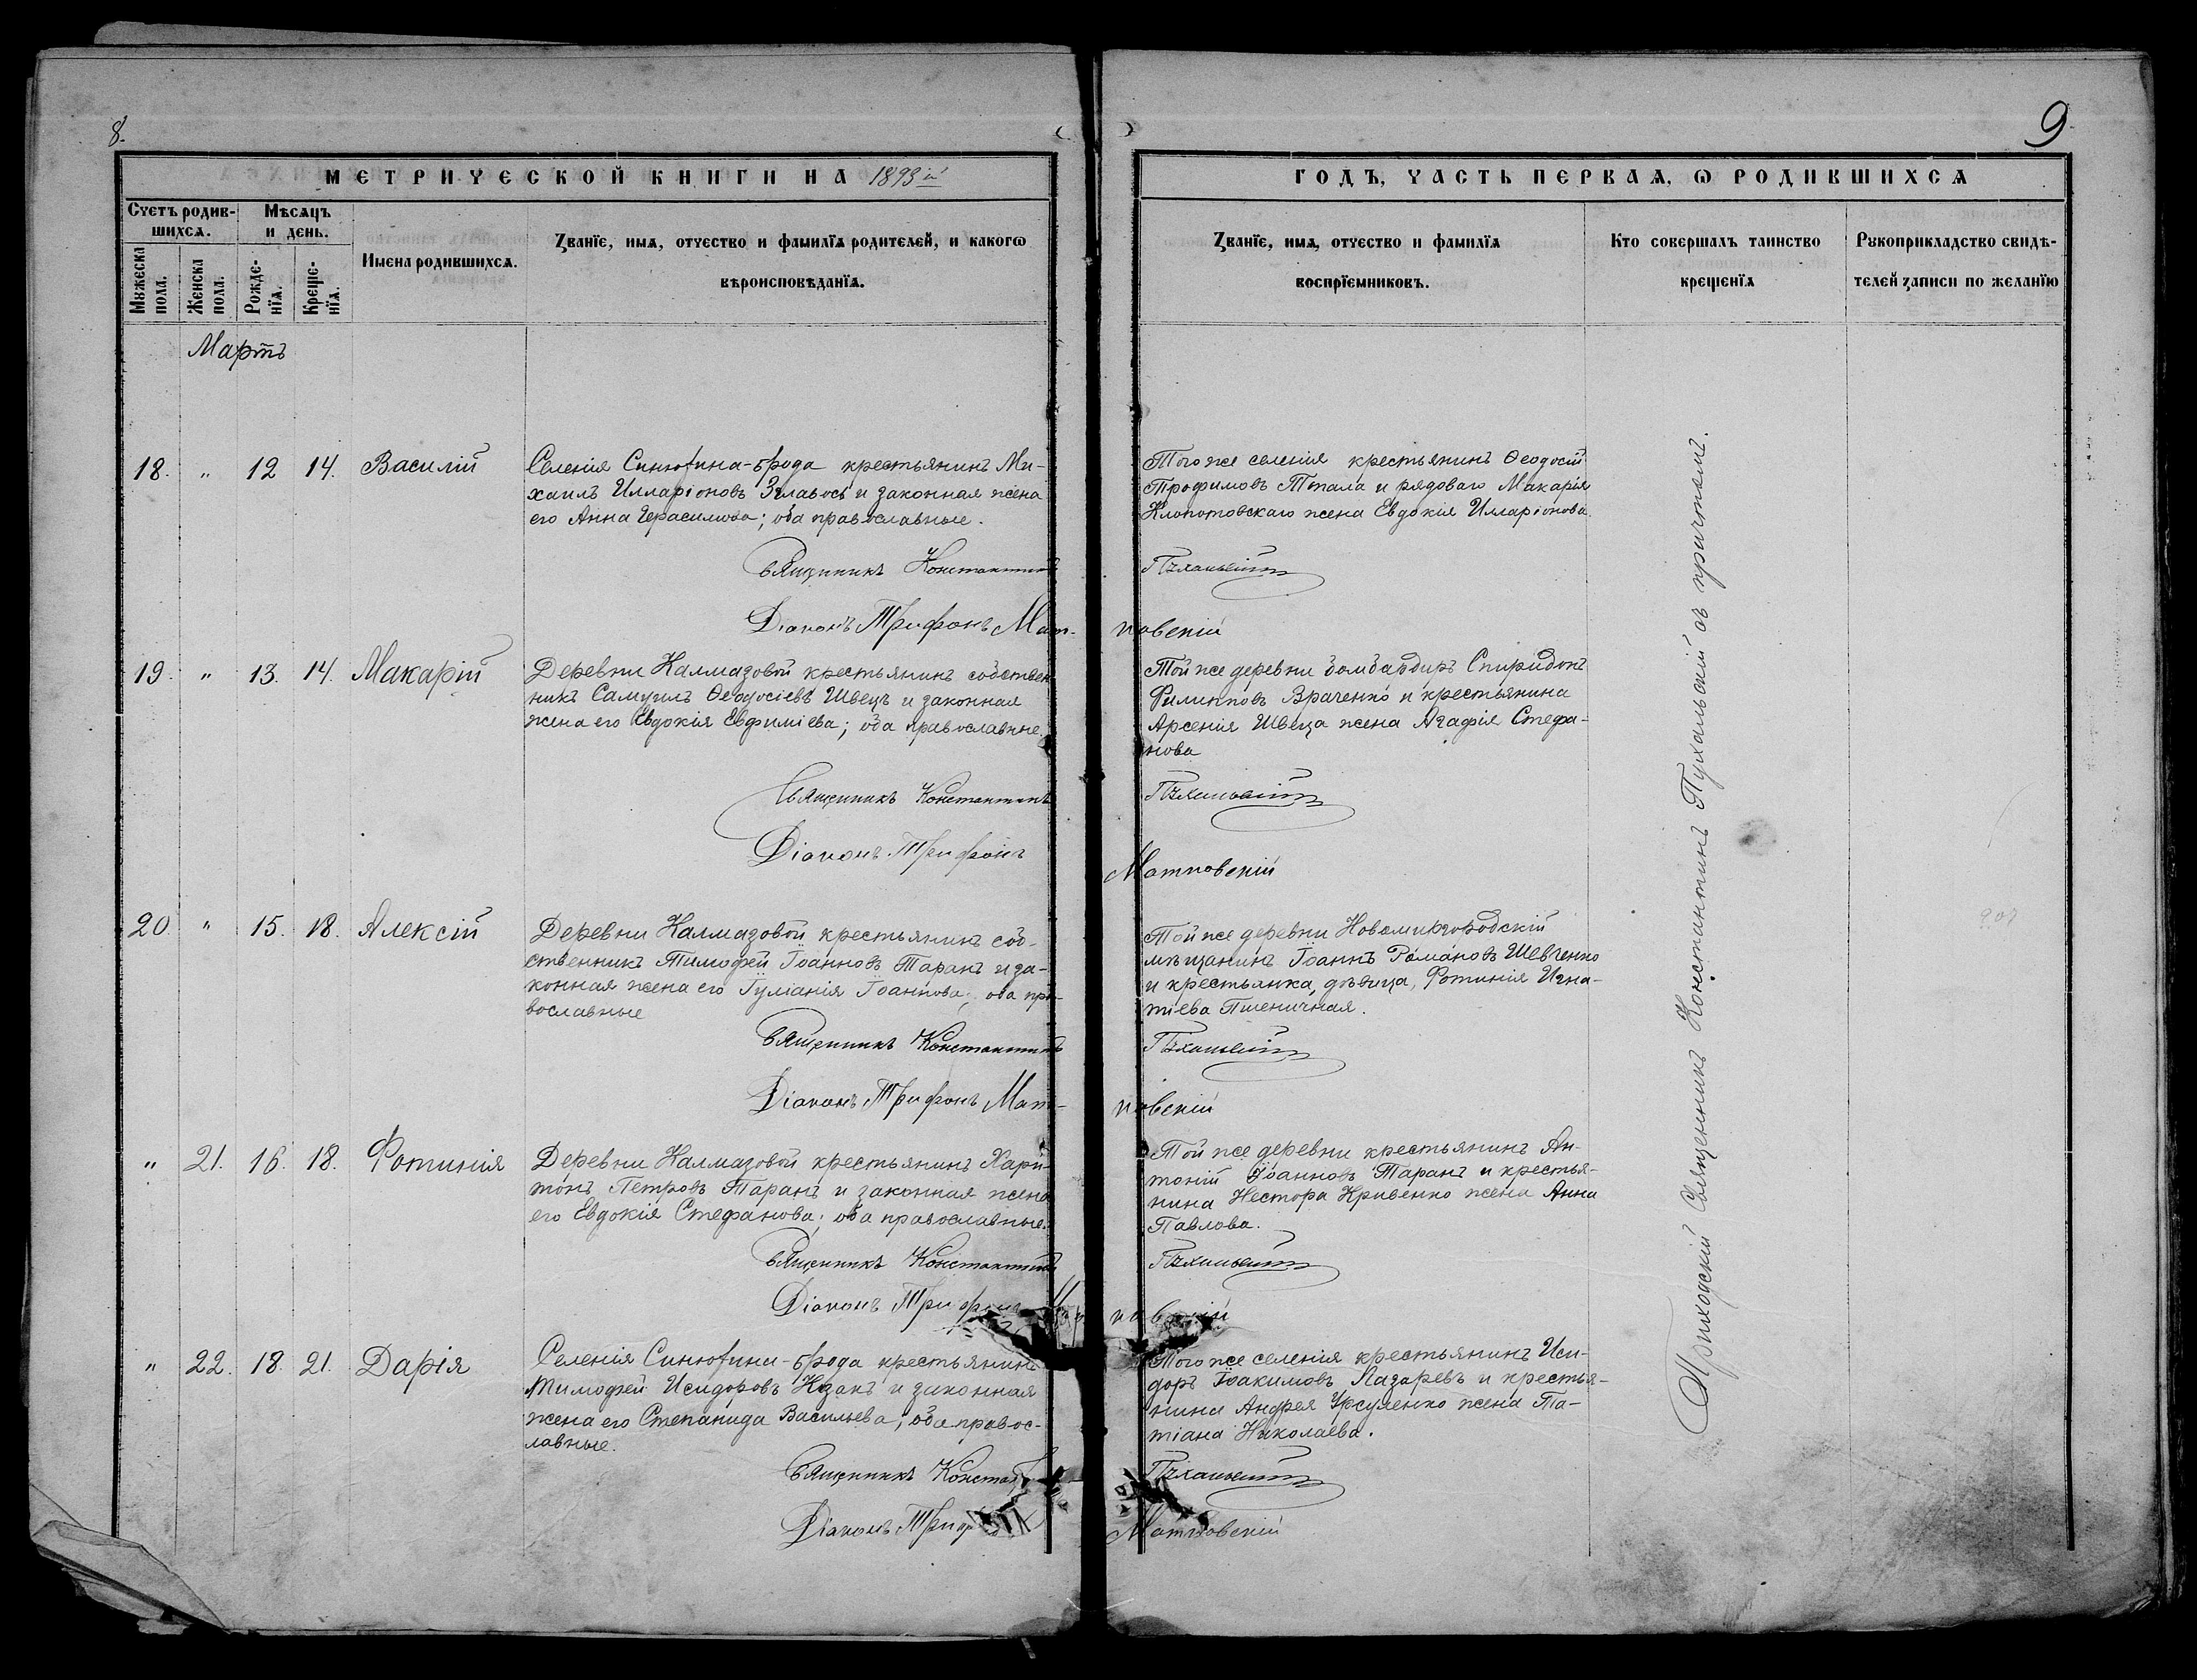 8.
МЕТРИЧЕСКОЙ КНИГИ НА 1893й
Счетъ родившихся.
Мѣсяцъ и день.
Мужеска пола.
Женска пола.
Рожденїя.
Крещенїя.
Имена родившихся.
Званїе, имя, отчество и фамилїя родителей, и какогѡ
вѣроисповѣданїя.
Мартъ
18. " 12 14. Василій
Селенія Синюхина-брода крестьянинъ Ми-
хаилъ Илларіоновъ и законная жена
его Анна Герасимова; оба православные.
Священникъ Константинъ
Діаконъ Трифонъ Мат-
19. " 13. 14. Макарій
Деревни Калмазовой крестьянинъ собствен
никъ Самуилъ Ѳеодосіевъ Швецъ и законная
жена его Евдокія Евфиміева; оба православные.
Священникъ Константинъ
Діаконъ Трифонъ
20 " 15. 18. Алексій
Деревни Калмазовой крестьянинъ соб-
ственникъ Тимофей Іоанновъ Таранъ и за-
конная жена его Іуліанія Іоаннова; оба пра-
вославные
Священникъ Константинъ
Діаконъ Трифонъ Мат-
" 21. 16. 18. Фотинія
Деревни Калмазовой крестьянинъ Хари-
тонъ Петровъ Таранъ и законная жена
его Евдокія Стефанова; оба православные.
Священникъ Константинъ
Діаконъ Трифонъ
" 22. 18. 21. Дарія
Селенія Синюхина-брода крестьянинъ
Тимофей Исидоровъ Казакъ и законная
жена его Степанида Васильева; оба правос-
лавные.
Священникъ
Діаконъ
9
ГОДЪ, ЧАСТЬ ПЕРВАЯ, Ѡ РОДИВШИХСЯ
Званїе, имя, отчество и фамилїя
воспрїемниковъ.
Кто совершалъ таинство
крещенїя
Рукоприкладство свидѣ-
телей записи по желанїю
Того же селенія крестьянинъ Ѳеодосій
Трофимовъ и рядоваго Макарія
Клопотовскаго жена Евдокія Илларіонова.
Пухальскій
ковскій
Той же деревни бомбардиръ Спиридонъ
Филипповъ Враченко и крестьянина
Арсенія Швеца жена Агафія Стефа-
нова
Пухальскій
Матковскій
Той же деревни Новомиргородскій
мѣщанинъ Іоаннъ Романовъ Шевченко
и крестьянка, дѣвица, Фотинія Игна-
тіева Пшеничная.
Пухальскій
ковскій
Той же деревни крестьянинъ Ан-
тоній Іоанновъ Таранъ и крестья-
нина Нестора Кривенко жена Анна
Павлова.
Пухальскій
ковскій
Того же селенія крестьянинъ Иси-
доръ Іоакимовъ Лазаревъ и крестья-
нина Андрея Урсуленко жена Та-
тіана Николаева.
Пухальскій
Матковскій
Приходскій Священникъ Константинъ Пухальскій съ причтомъ.